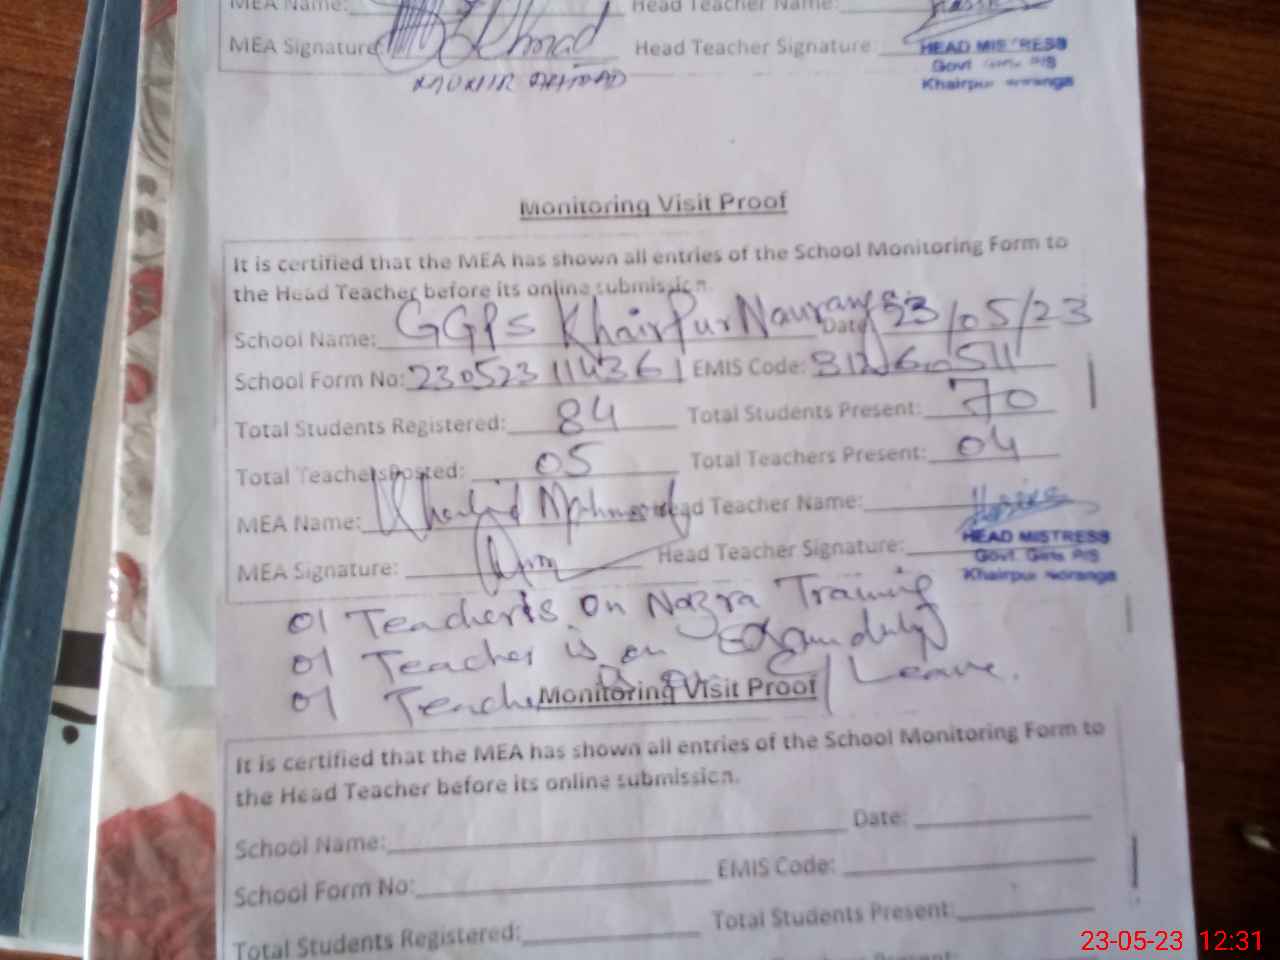 MEA Name: Head Teacher Name:
MEA Signature Head Teacher Signature:
HEAD MISTRESS
Govt Girls P/S
Khairpur Noranga
Monitoring Visit Proof
It is certified that the MEA has shown all entries of the School Monitoring Form to
the Head Teacher before its online submission.
School Name: GGPS Khairpur Nauranga Date 23/05/23
School Form No: 230523114361 EMIS Code: 31260511
Total Students Registered: 84 Total Students Present: 70
Total Teachers Posted: 05 Total Teachers Present: 04
MEA Name: Khalid Mahmood Head Teacher Name:
MEA Signature: Head Teacher Signature:
HEAD MISTRESS
Govt. Girls P/S
Khairpur Noranga
01 Teacher is on Nazra Training
01 Teacher is on Exam duty
01 Teacher is on C/Leave.
Monitoring Visit Proof
It is certified that the MEA has shown all entries of the School Monitoring Form to
the Head Teacher before its online submission.
School Name: Date:
School Form No: EMIS Code:
Total Students Registered: Total Students Present:
23-05-23 12:31